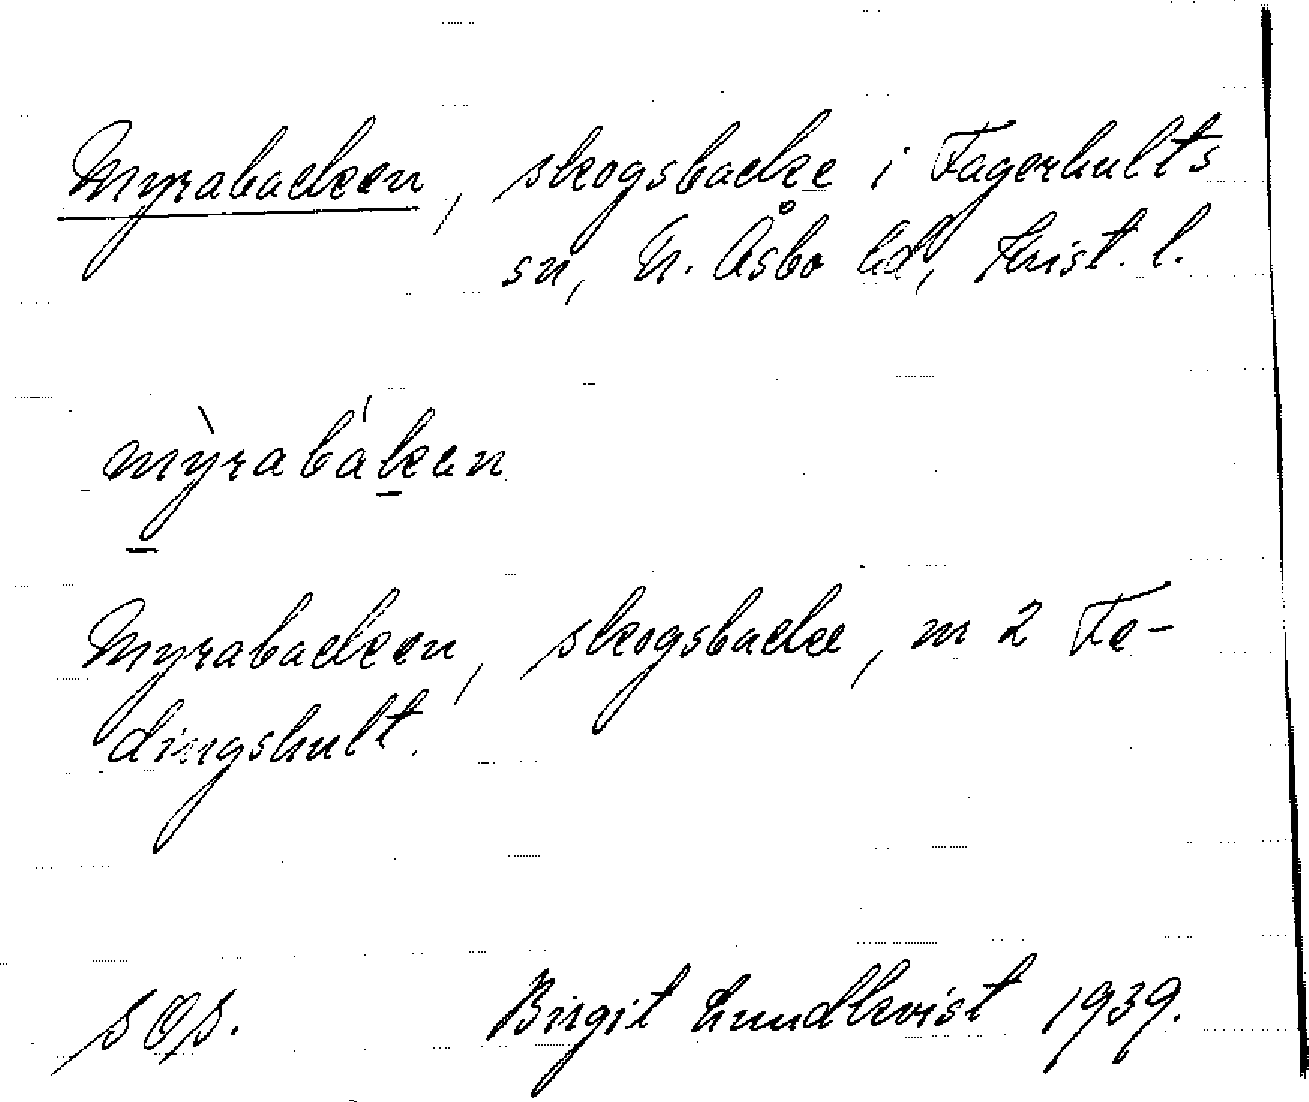 Myrabacken, skogsbacke i Fagerhults
sn, N. Åsbo hd, Krist. l.
mỳrabákan
Myrabacken, skogsbacke, m 2 Fe-
dingshult.
Birgit Lundkvist 1939.